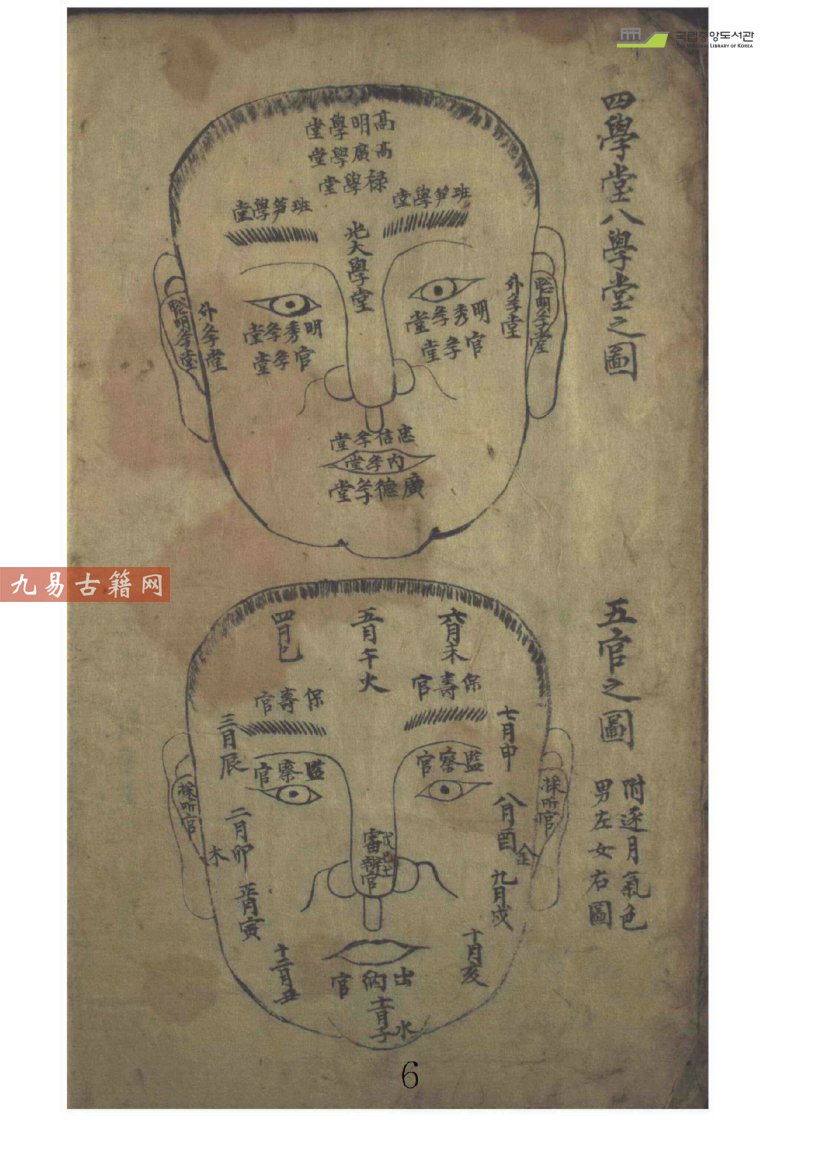 국립중앙도서관
THE NATIONAL LIBRARY OF KOREA
四學堂八學堂之圖
高明學堂
高廣學堂
祿學堂
班笋學堂
班笋學堂
光大學堂
聰明孝堂
外孝堂
明秀孝堂
官孝堂
外孝堂
聰明孝堂
明秀孝堂
官孝堂
忠信孝堂
內孝堂
廣德孝堂
九易古籍网
五官之圖
附逐月氣色
男左女右圖
六月未
五月午火
四月巳
保壽官
保壽官
七月申
三月辰
監察官
監察官
採听官
採听官
八月酉
金
二月卯
木
戊己土
審辨官
九月戌
正月寅
十月亥
十二月丑
出納官
十一月子
水
6